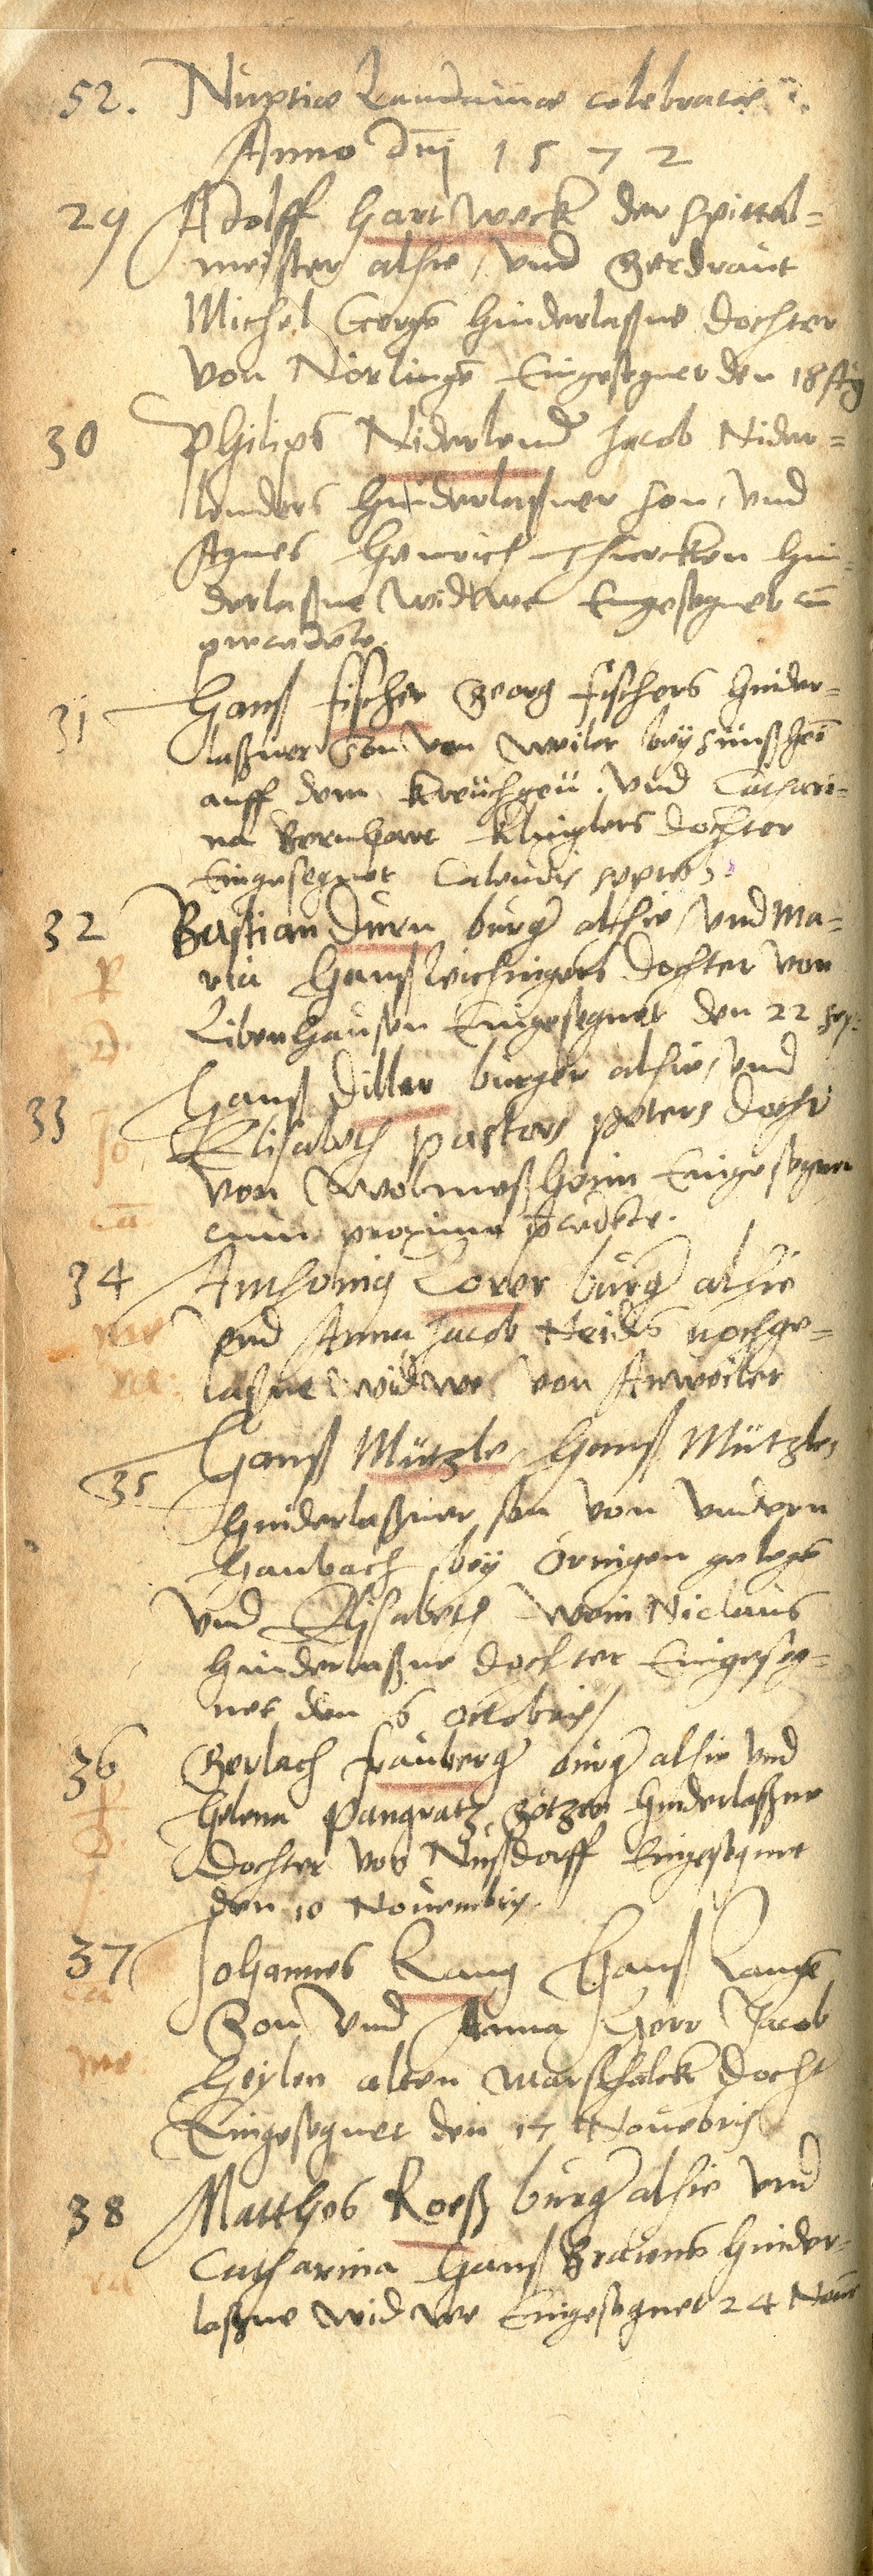 52. Nuptiae Landauiae celebratae
Anno dni 1572
29 Adolff Hartweck der Spittal=
meister alhie, vnd Gerdraut
Michel Georgē hinderlaßne dochter
von Nörlingē Eingesegnet den 18 Aug
30 Philips Niderlend Jacob Nider=
lenders hinderlaßner son, vnd
Agnes Henrich hin=
derlaßne widtwe Eingesegnet cū
precedēte.
31 Hanß fischer Georg fischers hinder=
laßner Son von Weiler bey Sinßhei
auff dem Kreichgeü. vnd Cathari=
na Bernhart Klinglers dochter
Eingesegnet Calendis septēb:
32 Bastian Dürn burger alhie, vnd Ma=
ria Hanß Leichingers dochter von
Eingesegnet den 22 Sep:
33 Hanß Diller burger alhie, vnd
Elisabeth pastors peters docht
von Wolmeßheim Eingesegnet
cum proxime pcedēte.
34 Anthonig Corer burg alhie
vnd Anna Jacob Neides nochge=
laßne widwe von Anweiler
35 Hanß Mützle Hanß Mützles
hinderlaßner son von vndern
bey Öringen gelegē
vnd Elisabeth Niclaus
hinderlaßne dochter Eingeseg=
net den 6 octobris
36 Gerlach frauberg burg alhie vnd
Helena Pangratz hinderlaßne
dochter von Nusdorff Eingesegnet
den 10 Nouembris.
37 Johannes Lang Hanß Langē
Son vnd Anna Herr Jacob
Heylen alten Marschalck docht
Eingesegnet den 17 Nouēbris
38 Matthes Roeß burg alhie vnd
Catharina Hanß Brauns hinder=
laßne widwe Eingesegnet 24 Noue